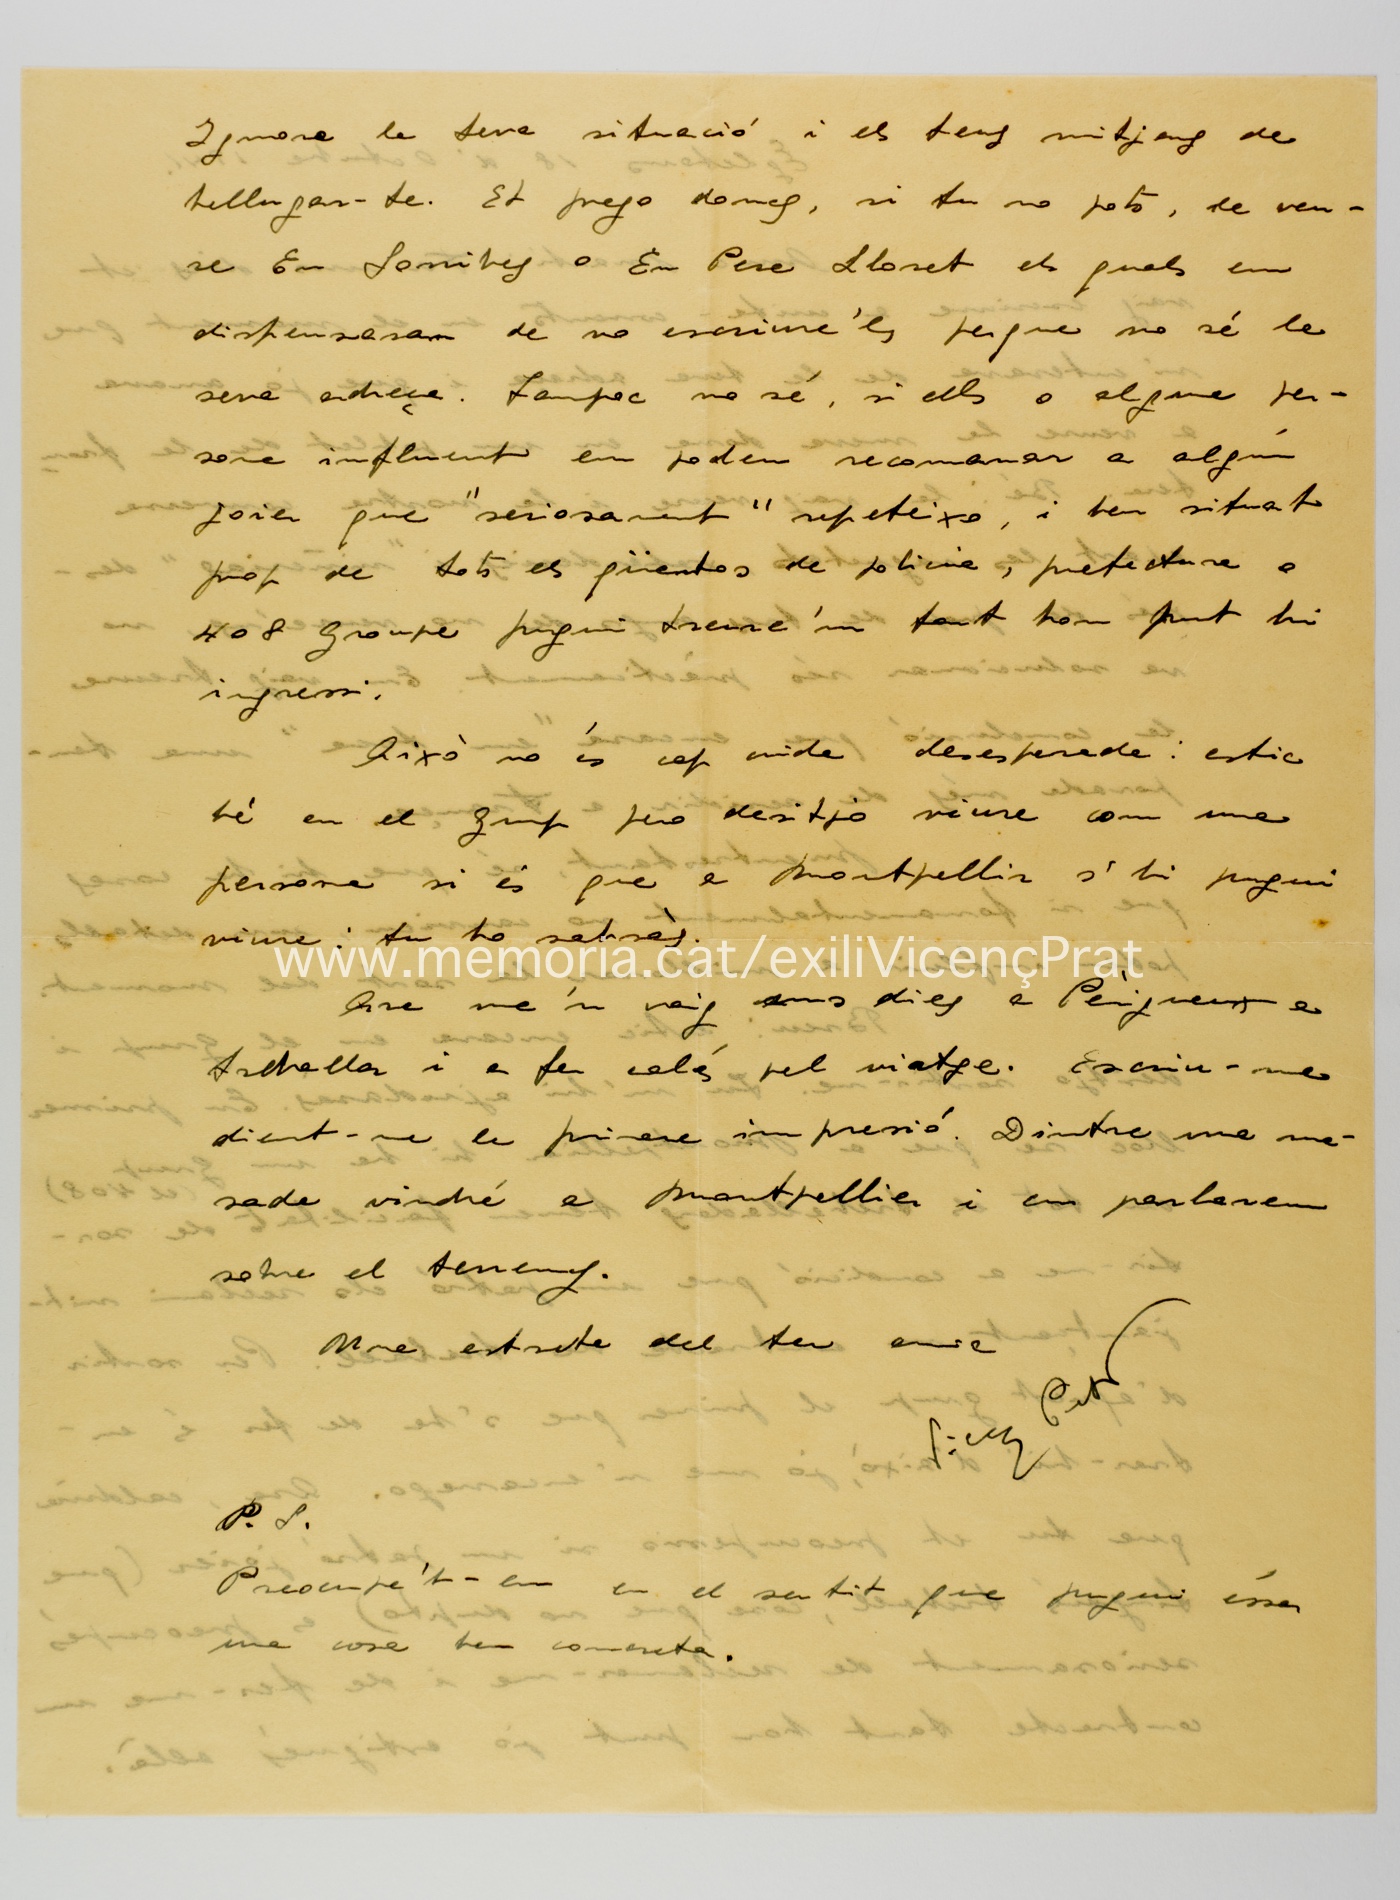 Ignore la teva situació i els teus mitjans de
bellugar-te. Et prego doncs, si tu no pots, de veu-
re En Sorribes o En Pere Lloret els quals em
dispensaran de no escriure'ls perque no sé la
seva adreça. Tampoc no sé, si ells o alguna per-
sona influent em poden recomanar a algún
joier que "seriosament" repeteixo, i ben situat
prop de tots els güentos de policia, prefectura o
408 Groupe pugui treure'm tant bon punt hi
ingressi.
Això no és cap crida desesperada: estic
bé en el Grup pero desitjo viure com una
persona si és que a Montpellir s'hi pugui
viure: tu ho sabràs.
Ara me'n vaig uns dies a Périgueux a
treballar i a fer calés pel viatge. Escriu-me
dient-me la primera impresió. Dintre una me-
sada vindré a Montpellier i en parlarem
sobre el terreny.
Una estreta del teu amic
P. S.
Preocupe't-en en el sentit que pugui ésser
una cosa ben concreta.
www.memoria.cat/exiliVicençPrat